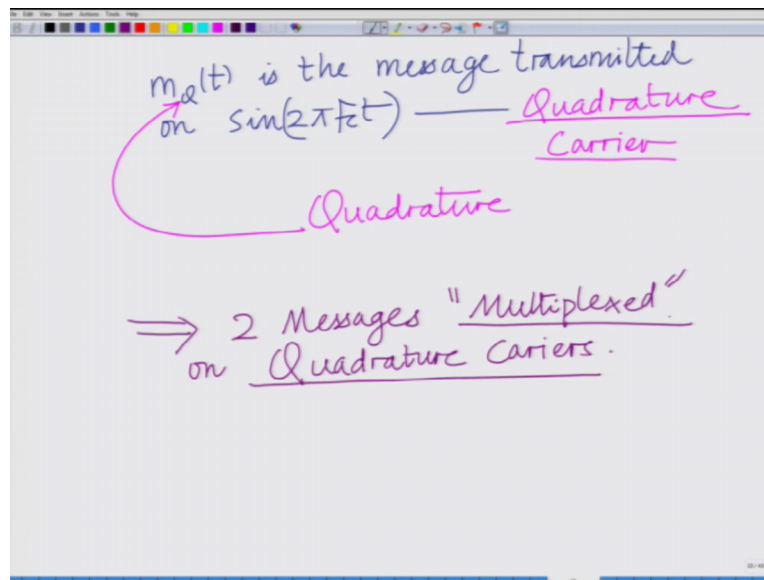 File Edit View Insert Actions Tools Help
m_Q(t) is the message transmitted
on sin(2πFct) — Quadrature
Carrier
Quadrature
⇒ 2 Messages "Multiplexed"
on Quadrature Cariers.